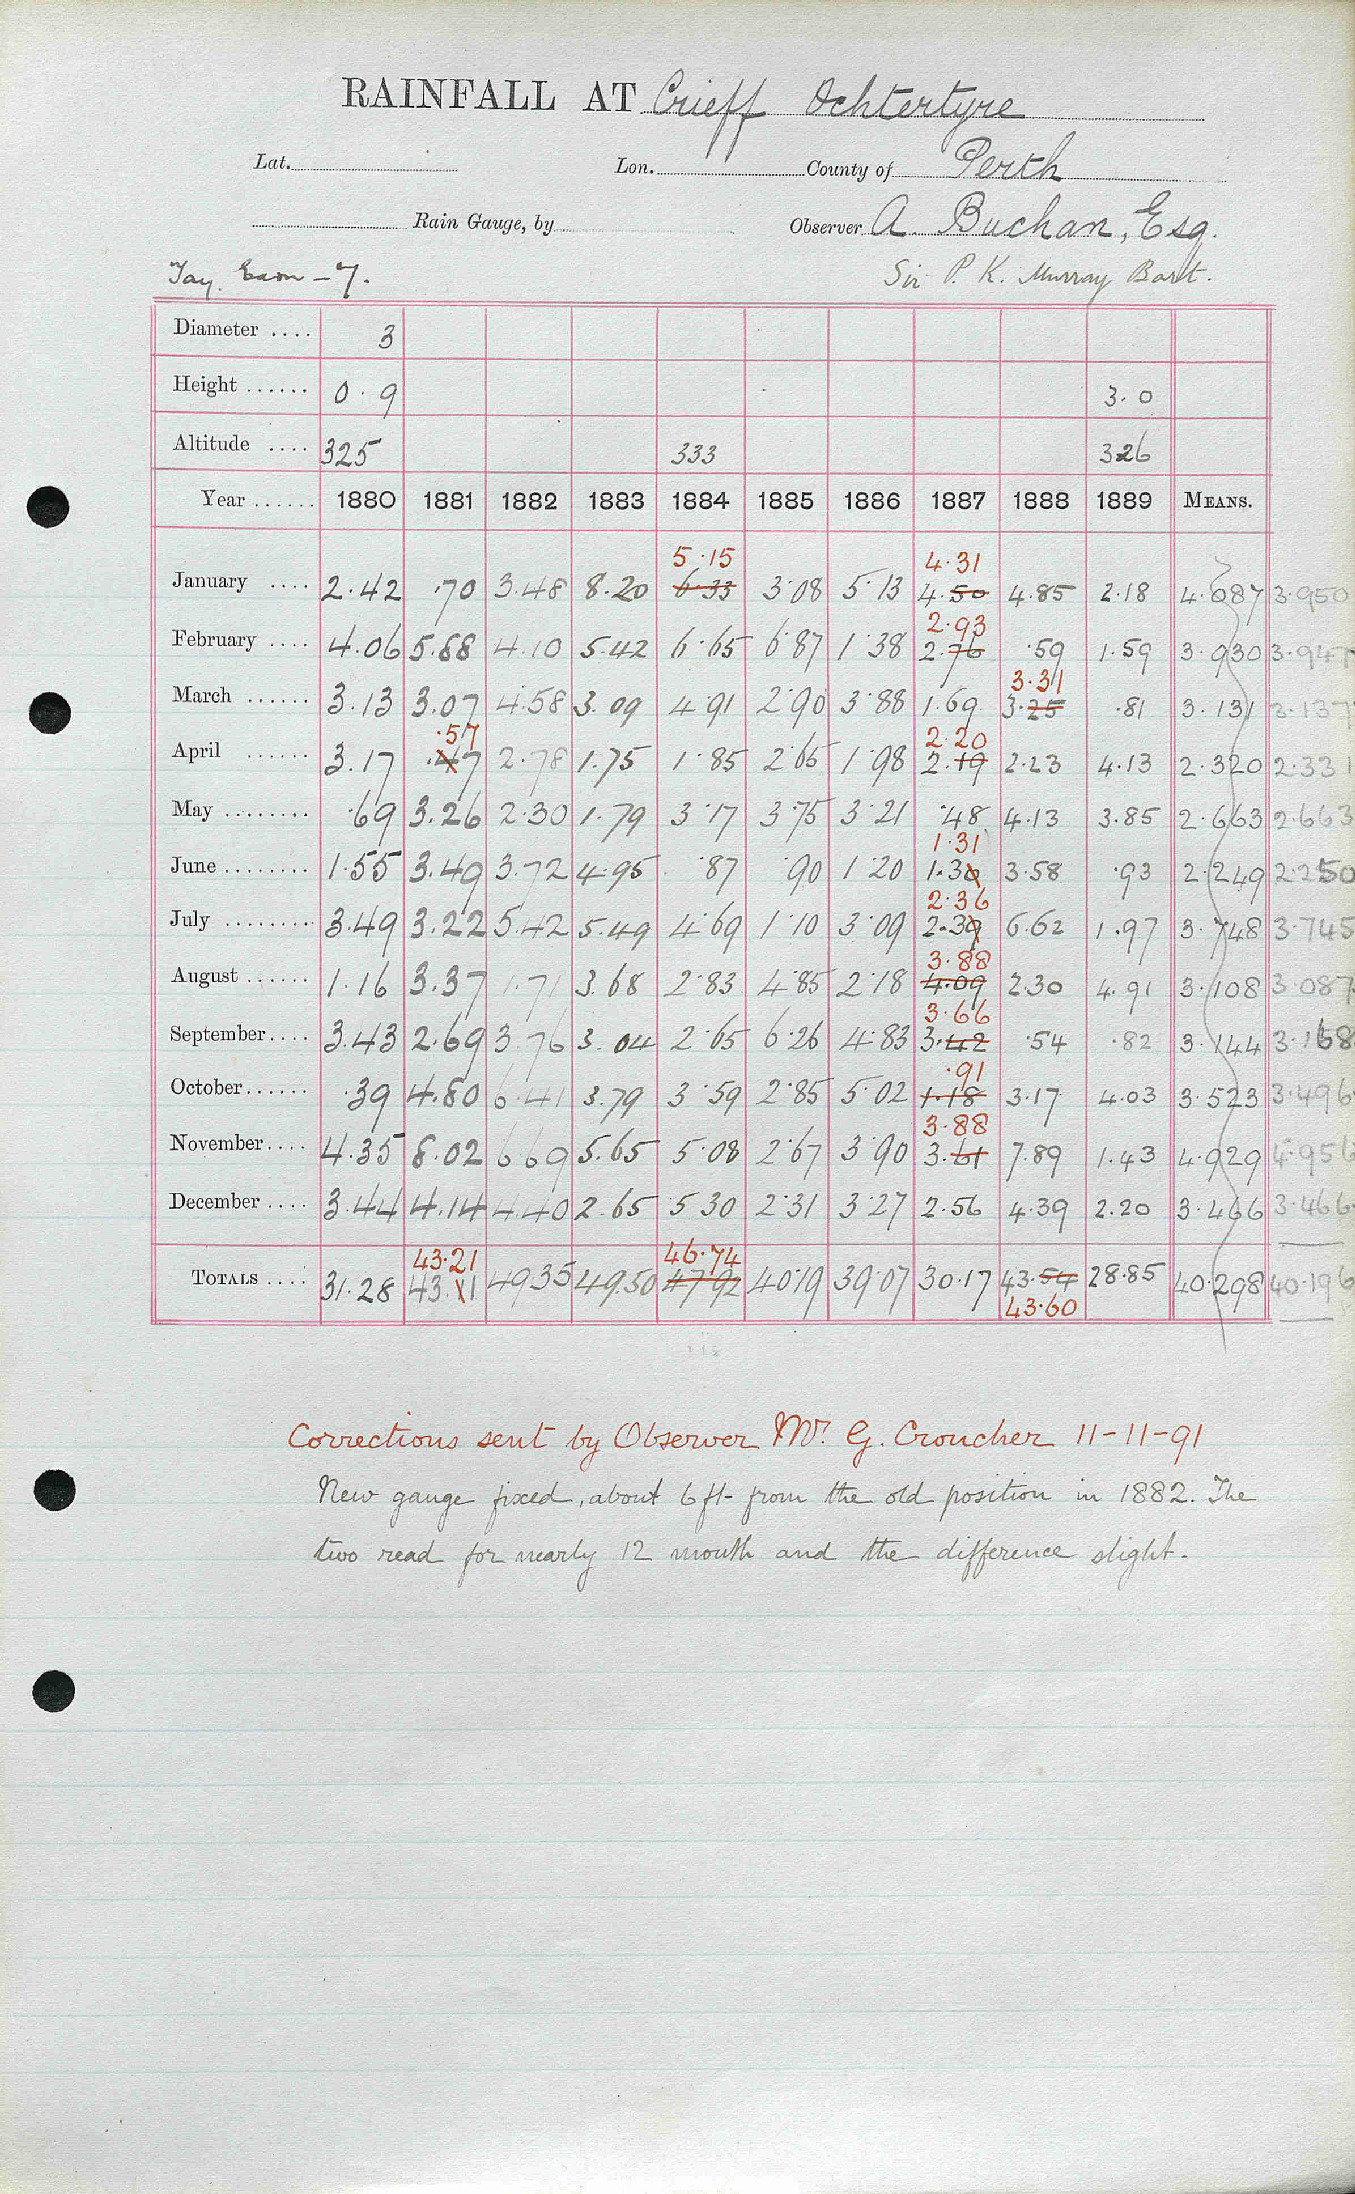 RAINFALL AT Crieff Ochtertyre
Lat. Lon. County of Perth
Rain Gauge, by Observer A Buchan, Esq.
Tay. Earn - 7. Sir P. K. Murray Bart.
Diameter .... 3
Height ...... 0.9 3.0
Altitude .... 325 333 326
Year ...... 1880 1881 1882 1883 1884 1885 1886 1887 1888 1889 MEANS.
5.15 4.31
January .... 2.42 .70 3.48 8.20 6.33 3.08 5.13 4.50 4.85 2.18 4.087 3.950
2.93
February .... 4.06 5.88 4.10 5.42 6.65 6.87 1.38 2.76 .59 1.59 3.930 3.947
3.31
March ...... 3.13 3.07 4.58 3.09 4.91 2.90 3.88 1.69 3.25 .81 3.131 3.137
.57 2.20
April ...... 3.17 .47 2.78 1.75 1.85 2.65 1.98 2.19 2.23 4.13 2.320 2.331
May ........ .69 3.26 2.30 1.79 3.17 3.75 3.21 .48 4.13 3.85 2.663 2.663
1.31
June ........ 1.55 3.49 3.72 4.95 .87 .90 1.20 1.30 3.58 .93 2.249 2.250
2.36
July ......... 3.49 3.22 5.42 5.49 4.69 1.10 3.09 2.39 6.62 1.97 3.748 3.745
3.88
August ...... 1.16 3.37 1.71 3.68 2.83 4.85 2.18 4.09 2.30 4.91 3.108 3.087
3.66
September.... 3.43 2.69 3.76 3.04 2.65 6.26 4.83 3.42 .54 .82 3.144 3.168
.91
October...... .39 4.80 6.41 3.79 3.59 2.85 5.02 1.18 3.17 4.03 3.523 3.496
3.88
November.... 4.35 8.02 6.69 5.65 5.08 2.67 3.90 3.61 7.89 1.43 4.929 4.956
December .... 3.44 4.14 4.40 2.65 5.30 2.31 3.27 2.56 4.39 2.20 3.466 3.466
43.21 46.74
TOTALS .... 31.28 43.11 49.35 49.50 47.92 40.19 39.07 30.17 43.54 28.85 40.298 40.196
43.60
Corrections sent by Observer Mr. G. Croucher 11-11-91
New gauge fixed, about 6 ft from the old position in 1882. The
two read for nearly 12 month and the difference slight.